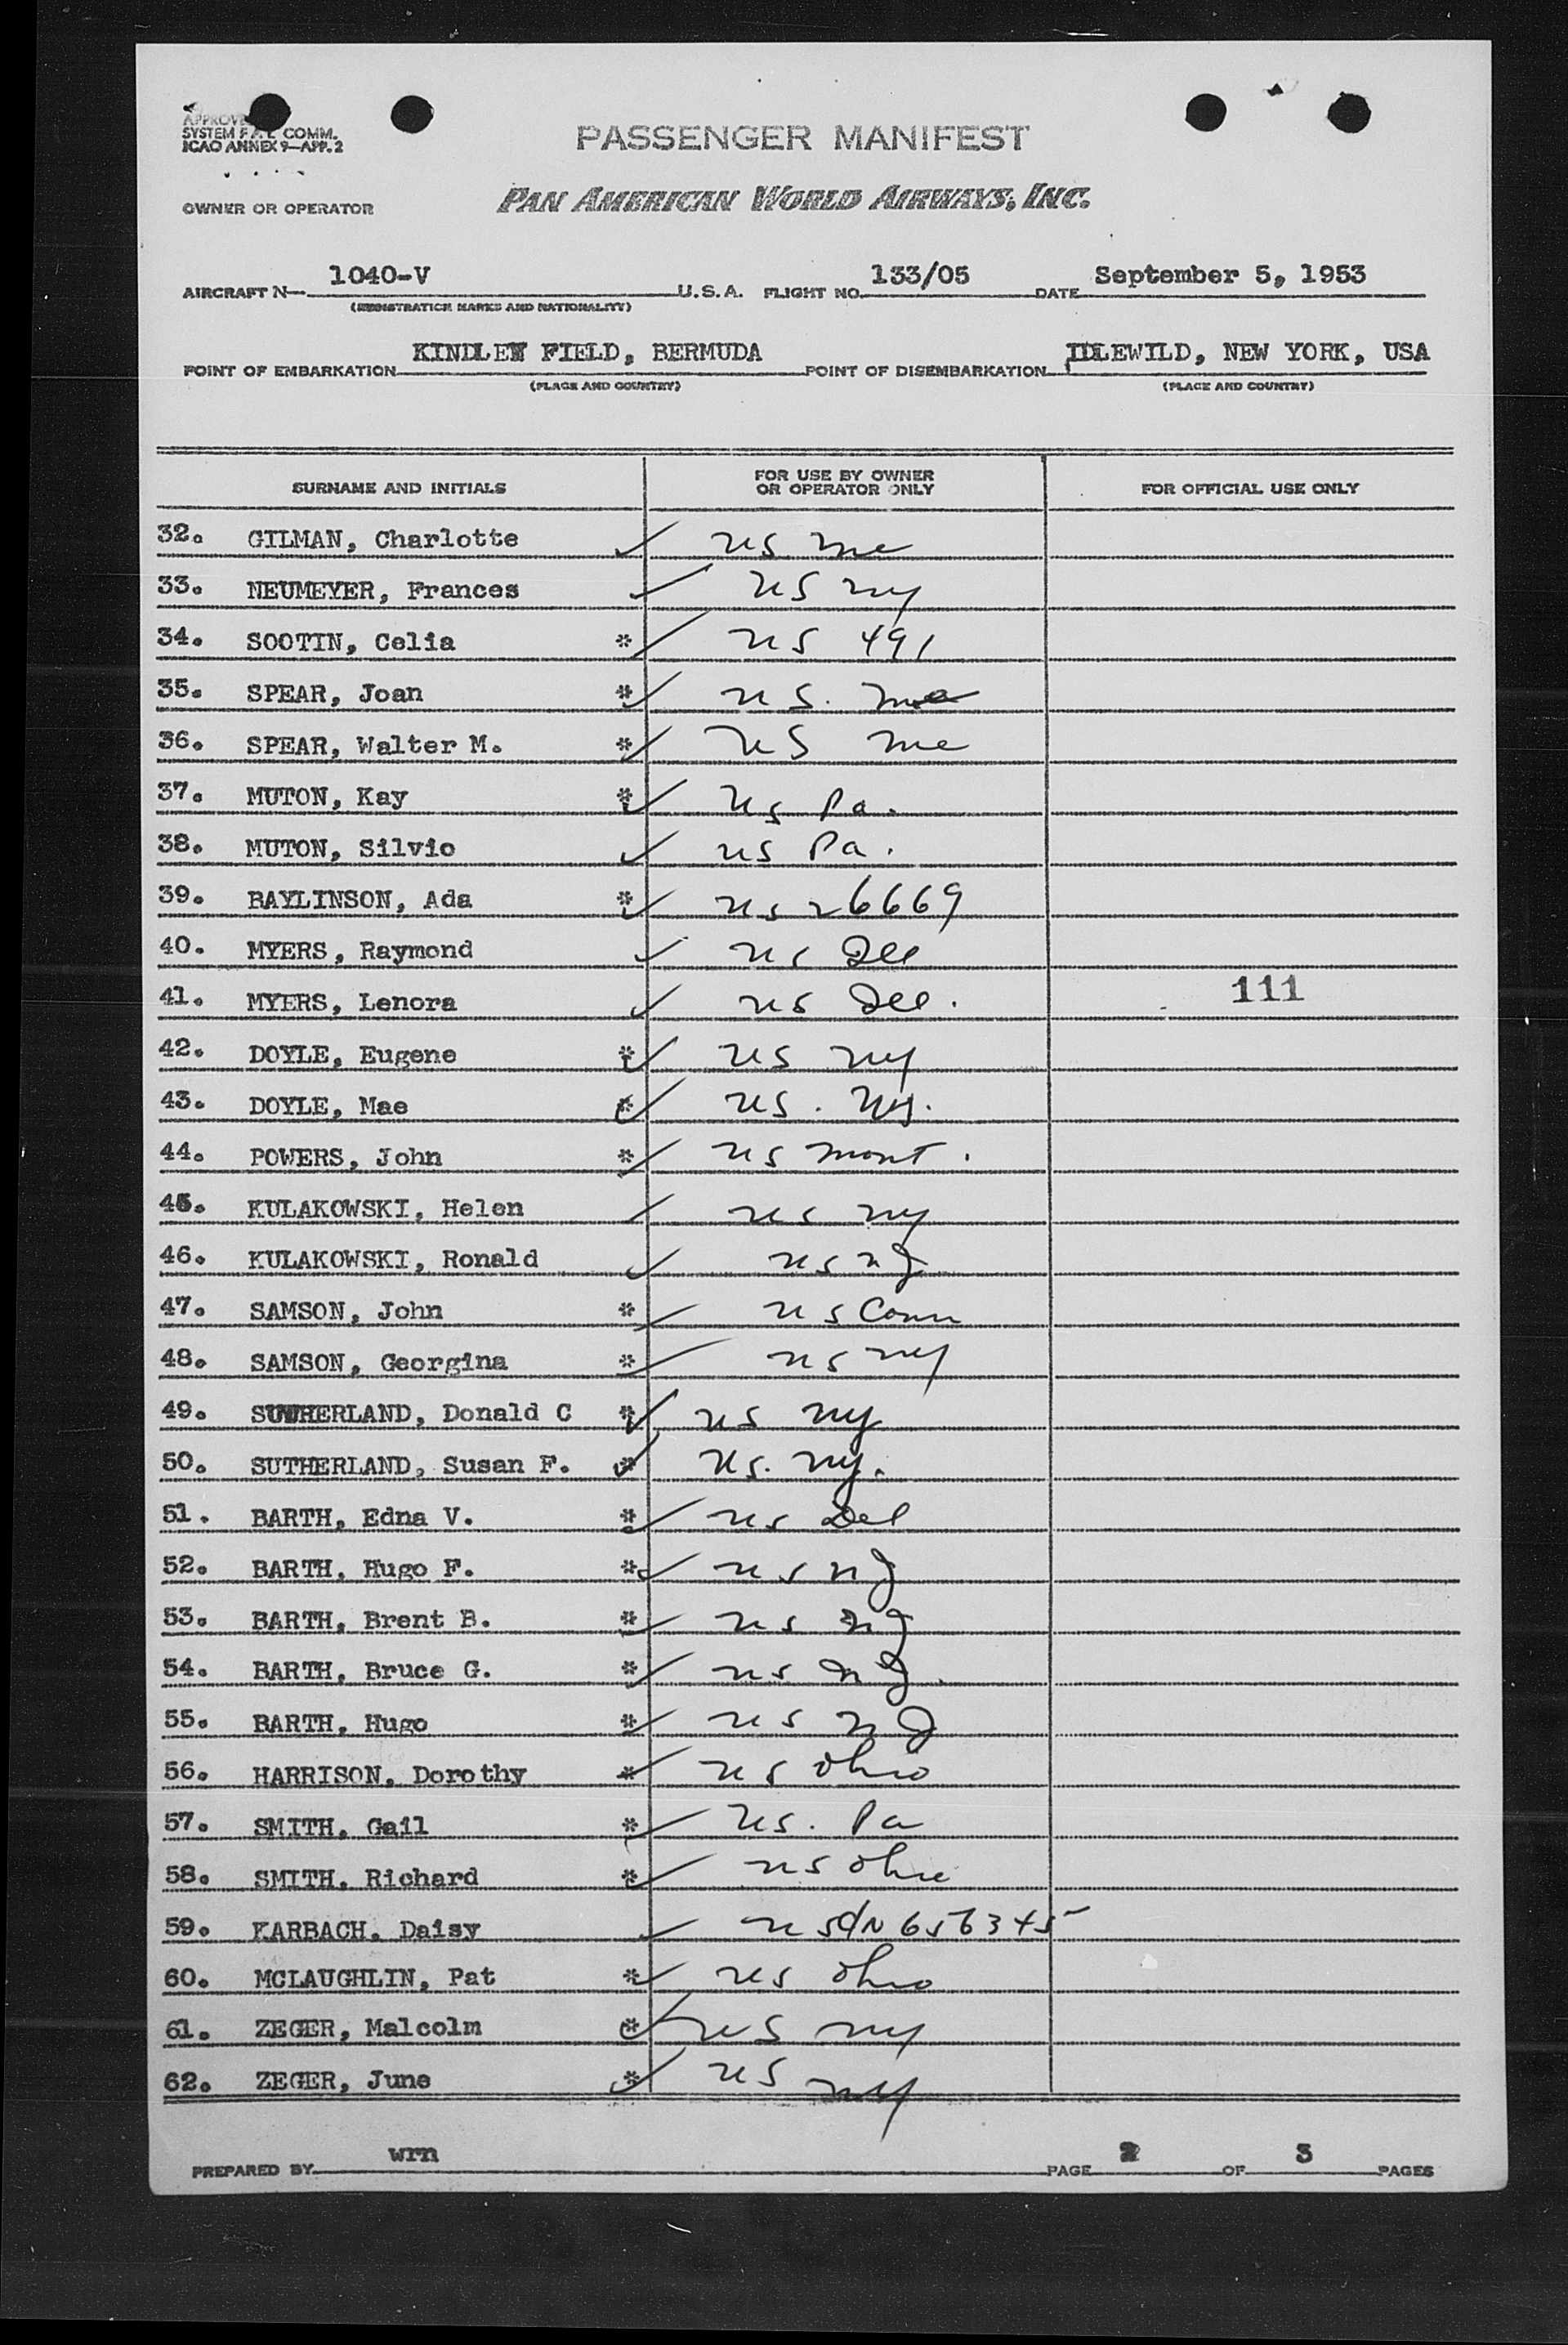 APPROVED
SYSTEM F.A.L. COMM.
ICAO ANNEX 9—APP. 2
PASSENGER MANIFEST
OWNER OR OPERATOR PAN AMERICAN WORLD AIRWAYS, INC.
AIRCRAFT N— 1040-V U.S.A. FLIGHT NO. 133/05 DATE September 5, 1953
(REGISTRATION MARKS AND NATIONALITY)
POINT OF EMBARKATION KINDLEY FIELD, BERMUDA POINT OF DISEMBARKATION IDLEWILD, NEW YORK, USA
(PLACE AND COUNTRY) (PLACE AND COUNTRY)
SURNAME AND INITIALS FOR USE BY OWNER OR OPERATOR ONLY FOR OFFICIAL USE ONLY
32. GILMAN, Charlotte ✓ US me
33. NEUMEYER, Frances ✓ US ny
34. SOOTIN, Celia *✓ US 491
35. SPEAR, Joan *✓ US. me
36. SPEAR, Walter M. *✓ US me
37. MUTON, Kay *✓ US Pa.
38. MUTON, Silvio ✓ US Pa.
39. BAYLINSON, Ada *✓ US 26669
40. MYERS, Raymond ✓ US
41. MYERS, Lenora ✓ US 111
42. DOYLE, Eugene *✓ US ny
43. DOYLE, Mae *✓ US. ny.
44. POWERS, John *✓ US mont.
45. KULAKOWSKI, Helen ✓ US ny
46. KULAKOWSKI, Ronald ✓ US nJ
47. SAMSON, John *✓ US Conn
48. SAMSON, Georgina *✓ US ny
49. SUTHERLAND, Donald C *✓ US ny
50. SUTHERLAND, Susan F. *✓ US. ny.
51. BARTH, Edna V. *✓ US Del
52. BARTH, Hugo F. *✓ US nJ
53. BARTH, Brent B. *✓ US nJ
54. BARTH, Bruce G. *✓ US nJ.
55. BARTH, Hugo *✓ US nJ
56. HARRISON, Dorothy *✓ US Ohio
57. SMITH, Gail *✓ US. Pa
58. SMITH, Richard *✓ US Ohio
59. KARBACH, Daisy ✓ US
60. MCLAUGHLIN, Pat *✓ US Ohio
61. ZEGER, Malcolm *✓ US ny
62. ZEGER, June *✓ US ny
PREPARED BY wrn PAGE 2 OF 3 PAGES